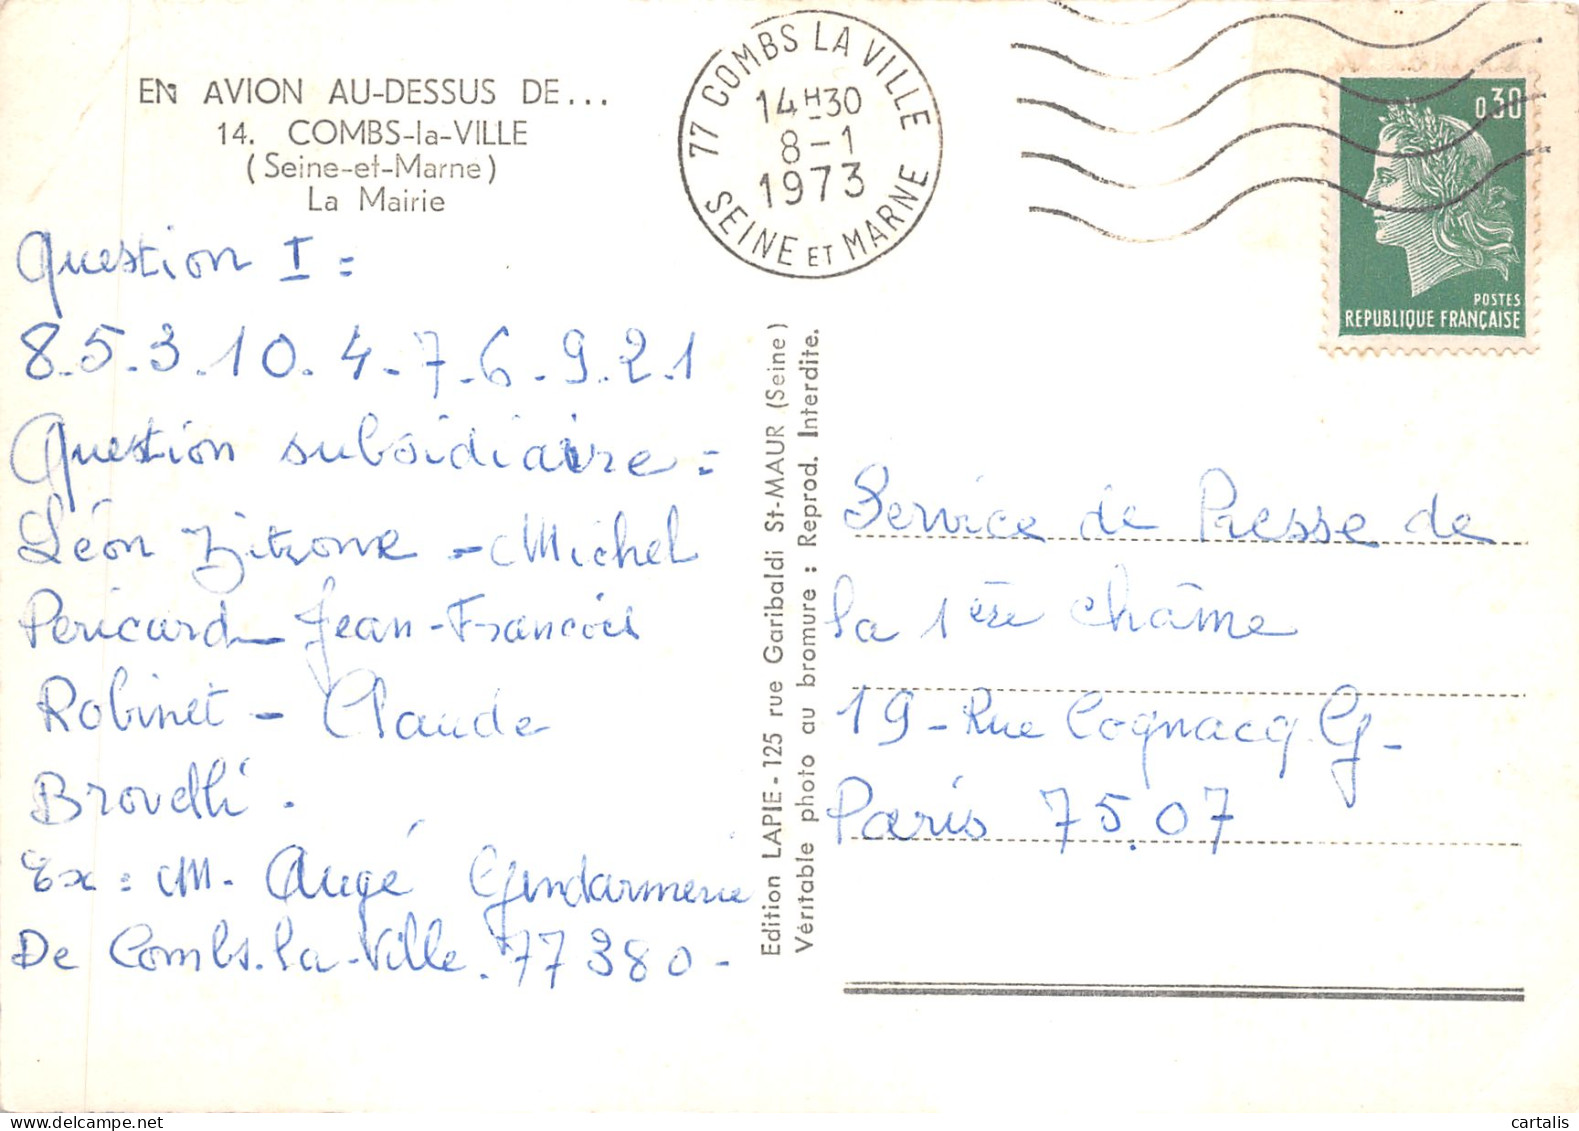 EN AVION AU-DESSUS DE...
14. COMBS-la-VILLE
(Seine-et-Marne)
La Mairie
77 COMBS LA VILLE
14H30
8-1
1973
SEINE ET MARNE
0,30
POSTES
REPUBLIQUE FRANÇAISE
Question I =
8.5.3.10.4-7-6-9.2.1
Question subsidiaire =
Léon Zitrone - Michel
Pericard - Jean-François
Robinet - Claude
Brovelli.
Ex = M. Augé Gendarmerie
De Combs.la-Ville. 77380-
Edition LAPIE - 125 rue Garibaldi St-MAUR (Seine)
Véritable photo au bromure : Reprod. Interdite.
Service de Presse de
la 1ère chaîne
19-Rue Cognacq.G-
Paris 75.07
cartalis